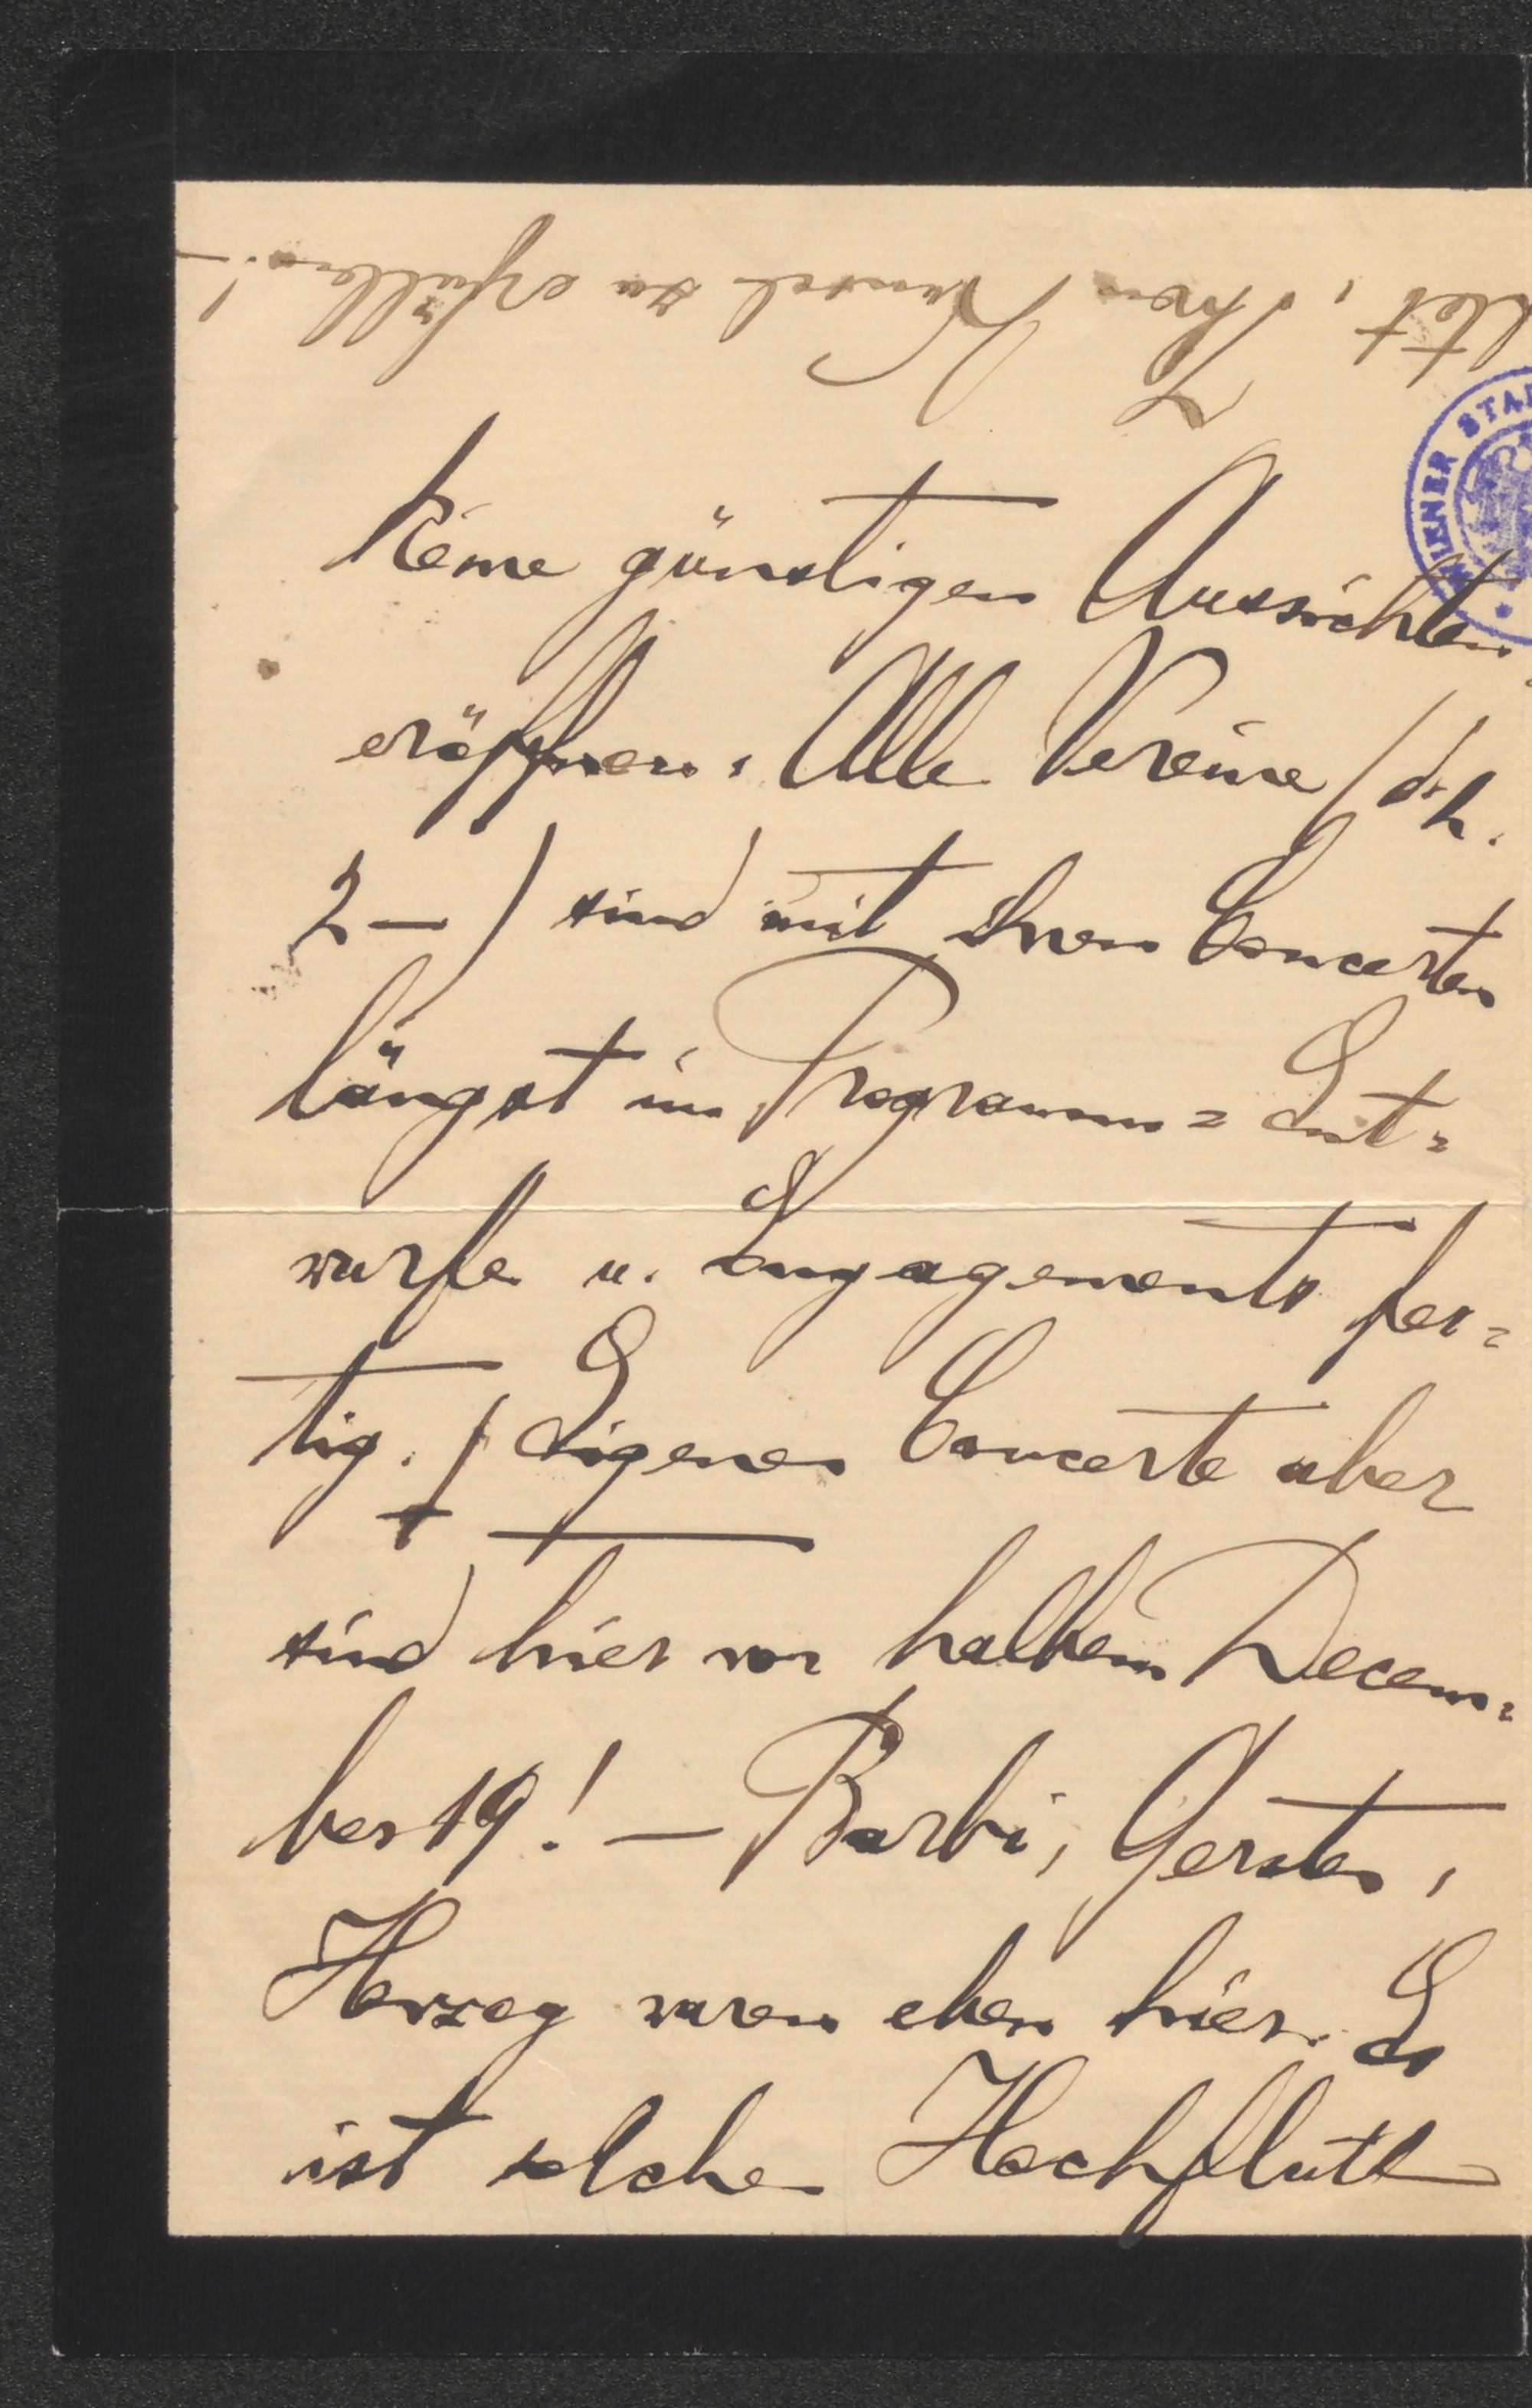 ltet, Ihren Wunsch zu erfüllen! –
WIENER STA
keine günstigen Aussichten
eröffnen. Alle Vereine (d. h.
2 –) sind mit ihren Concerten
längst im Programm=Ent=
wurfe u. Engagements fer=
tig. / Eigene Concerte aber
sind hier vor halbem Decem=
ber 19! – Barbi, Gerster,
Herzog waren eben hier. Es
ist solche Hochfluth